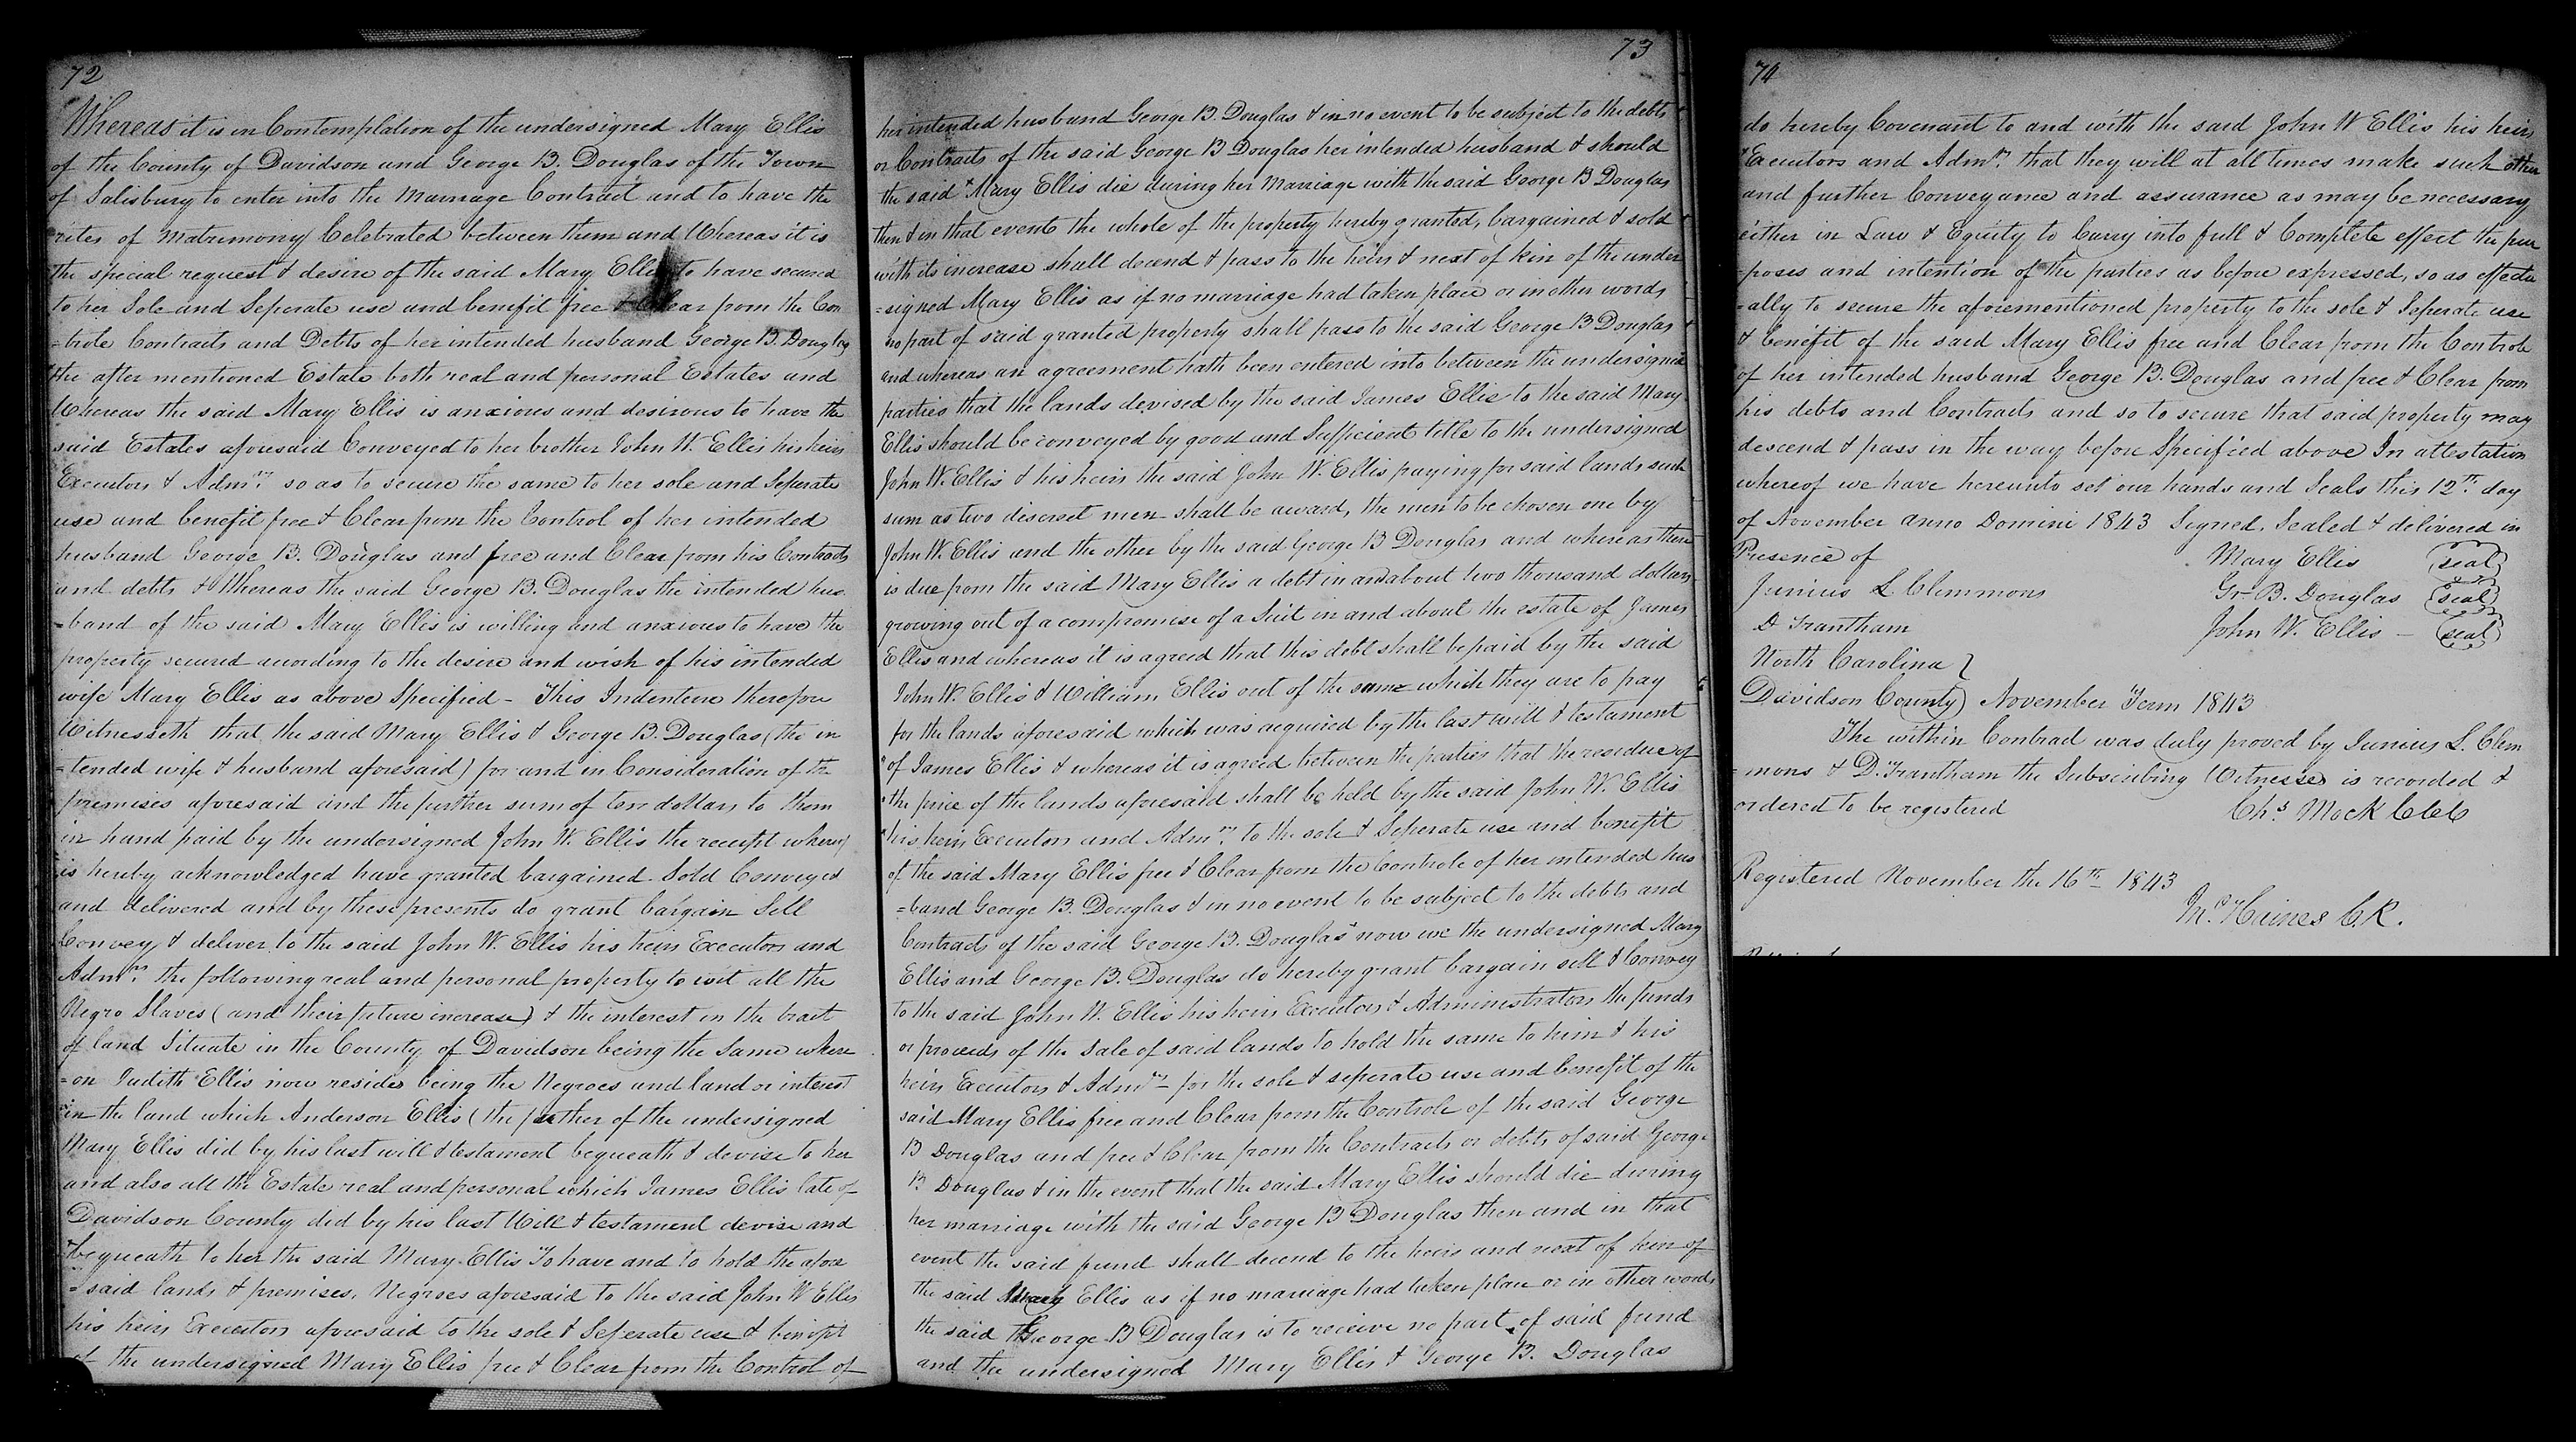 72
Whereas it is in Contemplation of the undersigned Mary Ellis
of the County of Davidson and George B. Douglas of the Town
of Salisbury to enter into the Marriage Contract and to have the
rites of Matrimony Celebrated between them and Whereas it is
the special request & desire of the said Mary Ellis to have secured
to her Sole and Seperate use and benefit free & Clear from the Con
=trole Contracts and Debts of her intended husband George B. Douglas
the after mentioned Estate both real and personal Estates and
Whereas the said Mary Ellis is anxious and desirous to have the
said Estates aforesaid Conveyed to her brother John W. Ellis his heirs
Executors & Admrs. so as to secure the same to her sole and Seperate
use and benefit free & Clear from the Control of her intended
husband George B. Douglas and free and Clear from his Contracts
and debts & Whereas the said George B. Douglas the intended hus
=band of the said Mary Ellis is willing and anxious to have the
property secured according to the desire and wish of his intended
wife Mary Ellis as above Specified - This Indenture therefore
Witnesseth that the said Mary Ellis & George B. Douglas (the in
=tended wife & husband aforesaid) for and in Consideration of the
premises aforesaid and the further sum of ten dollars to them
in hand paid by the undersigned John W. Ellis the receipt whereof
is hereby acknowledged have granted bargained Sold Conveyed
and delivered and by these presents do grant bargain Sell
Convey & deliver to the said John W. Ellis his heirs Executors and
Admrs. the following real and personal property to wit all the
Negro Slaves (and their future increase) & the interest in the tract
of land Situate in the County of Davidson being the Same where
=on Judith Ellis now resides being the Negroes and land or interest
in the land which Anderson Ellis (the father of the undersigned
Mary Ellis did by his last will & testament bequeath & devise to her
and also all the Estate real and personal which James Ellis late of
Davidson County did by his last Will & testament devise and
bequeath to her the said Mary Ellis To have and to hold the afore
=said lands & premises, Negroes aforesaid to the said John W Ellis
his heirs Executors aforesaid to the sole & Seperate use & benefit
of the undersigned Mary Ellis free & Clear from the Control of
73
her intended husband George B. Douglas & in no event to be subject to the debts
or Contracts of the said George B Douglas her intended husband & should
the said Mary Ellis die during her Marriage with the said George B Douglas
then & in that event the whole of the property hereby granted, bargained & sold
with its increase shall decend & pass to the heirs & next of kin of the under
=signed Mary Ellis as if no marriage had taken place or in other words
no part of said granted property shall pass to the said George B Douglas
and whereas an agreement hath been entered into between the undersigned
parties that the lands devised by the said James Ellis to the said Mary
Ellis should be conveyed by good and Sufficient title to the undersigned
John W. Ellis & his heirs the said John W. Ellis paying for said lands such
sum as two discreet men shall be award, the men to be chosen one by
John W. Ellis and the other by the said George B Douglas and whereas there
is due from the said Mary Ellis a debt in and about two thousand dollars
growing out of a compromise of a Suit in and about the estate of James
Ellis and whereas it is agreed that this debt shall be paid by the said
John W. Ellis & William Ellis out of the same which they are to pay
for the lands aforesaid which was acquired by the last will & testament
of James Ellis & whereas it is agreed between the parties that the residue of
the price of the lands aforesaid shall be held by the said John W. Ellis
his heirs Executors and Admrs. to the sole & Seperate use and benefit
of the said Mary Ellis free & Clear from the Controle of her intended hus
=band George B. Douglas & in no event to be subject to the debts and
Contracts of the said George B. Douglas now we the undersigned Mary
Ellis and George B. Douglas do hereby grant bargain sell & Convey
to the said John W. Ellis his heirs Executors & Administrators the funds
or proceeds of the Sale of said lands to hold the same to him & his
heirs Executors & Admrs - for the sole & seperate use and benefit of the
said Mary Ellis free and Clear from the Controle of the said George
B Douglas and free & Clear from the Contracts or debts of said George
B. Douglas & in the event that the said Mary Ellis should die during
her marriage with the said George B Douglas then and in that
event the said fund shall decend to the heirs and next of kin of
the said Mary Ellis as if no marriage had taken place or in other words
the said George B Douglas is to receive no part of said fund
and the undersigned Mary Ellis & George B. Douglas
74
do hereby Covenant to and with the said John W Ellis his heirs
Executors and Admrs. that they will at all times make such other
and further Conveyance and assurance as may be necessary
either in Law & Equity to Carry into full & Complete effect the pur
=poses and intention of the parties as before expressed, so as effectu
=ally to secure the aforementioned property to the sole & Seperate use
& benefit of the said Mary Ellis free and Clear from the Controle
of her intended husband George B. Douglas and free & Clear from
his debts and Contracts and so to secure that said property may
descend & pass in the way before Specified above In attestation
whereof we have hereunto set our hands and Seals this 12th. day
of November anno Domini 1843 Signed, Sealed & delivered in
Presence of Mary Ellis (seal)
Junius L Clemmons Gr. B. Douglas (seal)
D Trantham John W. Ellis - (seal)
North Carolina }
Davidson County) November Term 1843
The within Contract was duly proved by Junius L. Clem
=mons & D. Trantham the Subscribing Witnesses is recorded &
ordered to be registered Chs. Mock CCC
Registered November the 16th - 1843
Haines C.R.